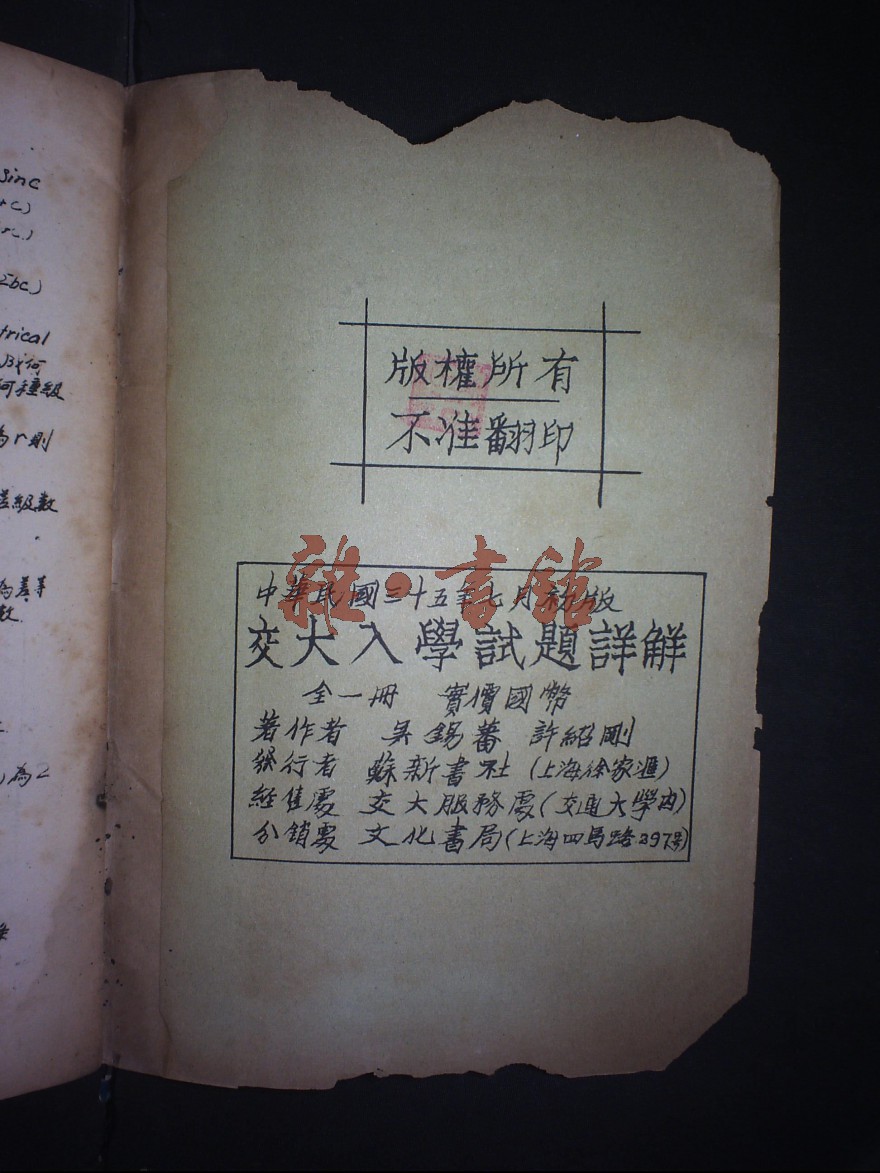 sinc
trical
何種級
為r則
差級數
為差等
數
)為2
版權所有
不准翻印
雜·書館
中華民國三十五年七月初版
交大入學試題詳解
全一冊 實價國幣
著作者 吳錫蕃 許紹剛
發行者 蘇新書社(上海徐家滙)
經售處 交大服務處(交通大學內)
分銷處 文化書局(上海四馬路297號)